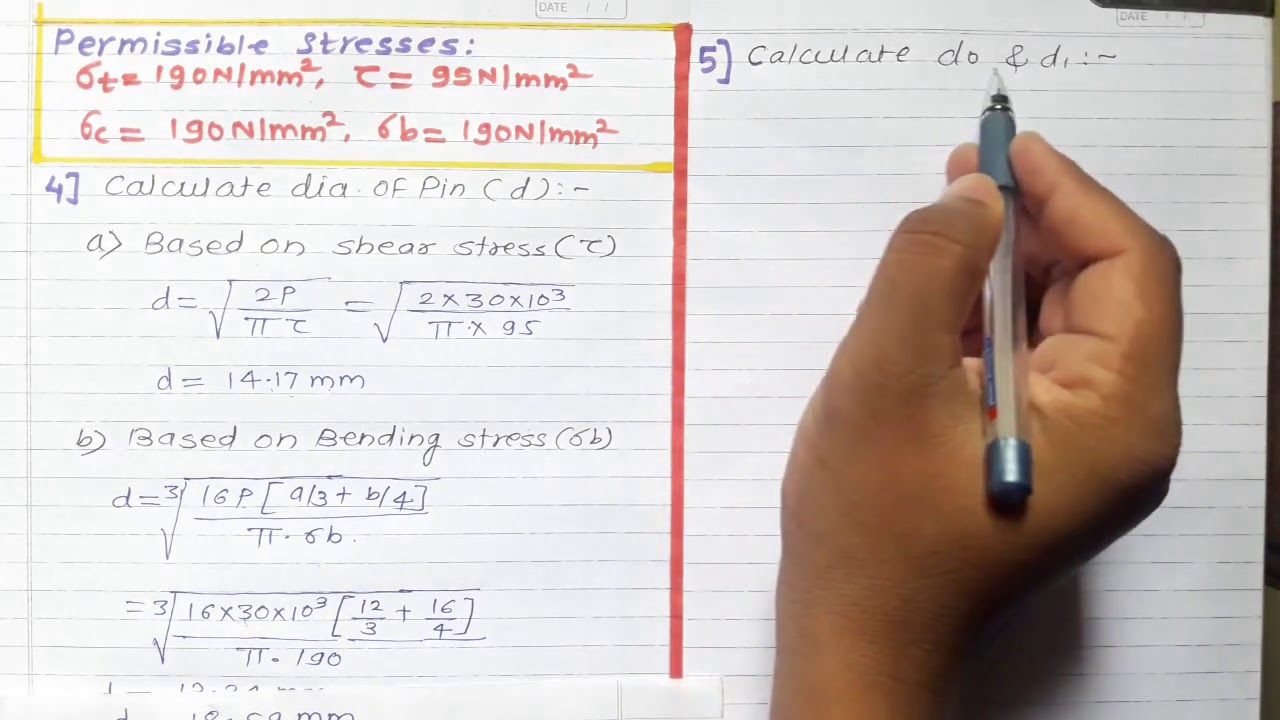 DATE / /
Permissible Stresses:
σt = 190N/mm², τ = 95N/mm²
σc = 190N/mm², σb = 190N/mm²
4] Calculate dia. OF Pin (d):-
a) Based on shear stress (τ)
d = √(2P / π τ) = √(2 × 30 × 10³ / π × 95)
d = 14.17 mm
b) Based on Bending stress (σb)
d = ³√(16P [a/3 + b/4] / π . σb.)
= ³√(16×30×10³ [12/3 + 16/4] / π . 190)
DATE / /
5] Calculate do & d1 :-